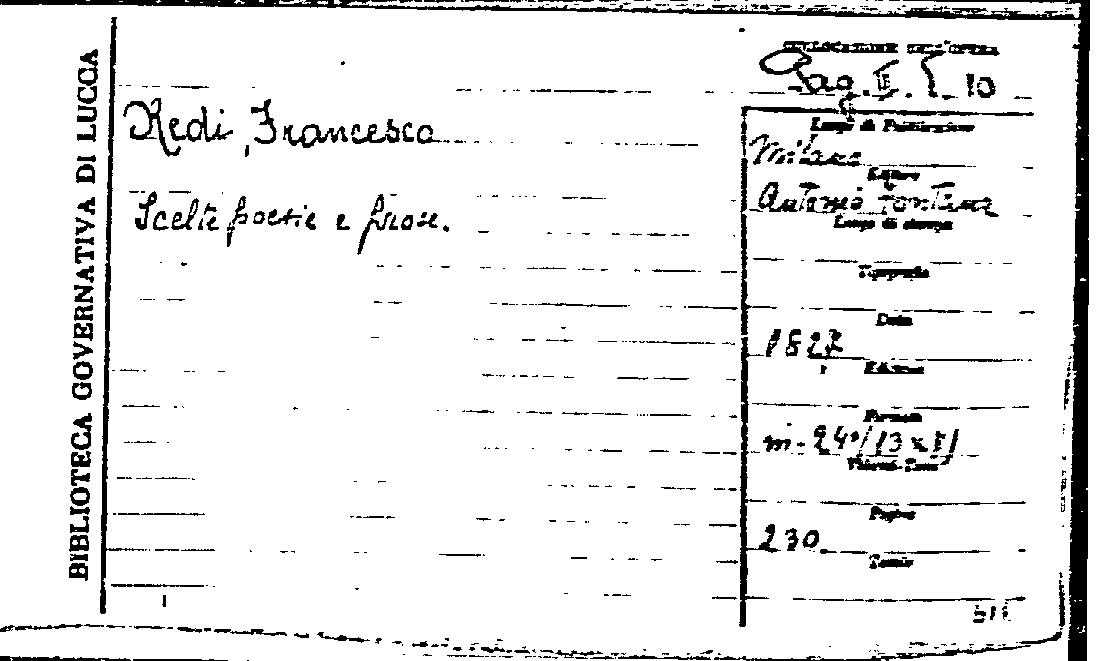 BIBLIOTECA GOVERNATIVA DI LUCCA
Redi, Francesco
Scelte poesie e prose.
COLLOCAZIONE DELL'OPERA
Pag. II. 10
Luogo di Pubblicazione
Milano
Editore
Antonio Fontana
Luogo di stampa
Tipografia
Data
1827
Edizione
Formato
in-24°/13 x
Volumi-Tomi
Pagine
230
Tavole